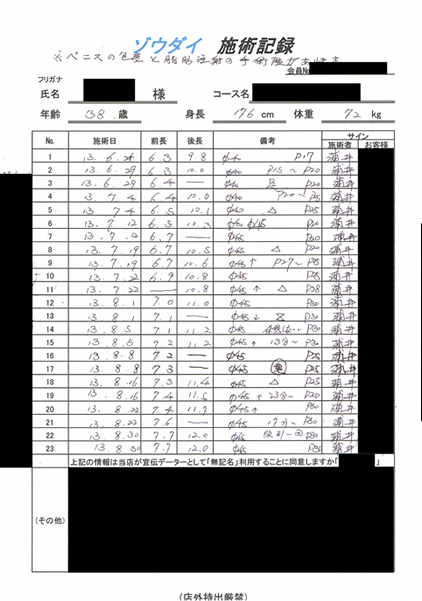 ゾウダイ 施術記録
※ペニスの包茎と脂肪注射の手術歴があります
会員№
フリガナ
氏名 様 コース名
年齢 38 歳 身長 176 cm 体重 72 kg
No. 施術日 前長 後長 備考 サイン
施術者 お客様
1 13.6.24 6.3 9.8 P17
2 13.6.29 6.3 10.0 P15～P20
3 13.6.29 6.4 — P20
4 13.7.4 6.4 10.0
5 13.7.4 6.5 10.1 φ40 △ P25
6 13.7.12 6.5 φ40 φ45
7 13.7.12 6.7 — φ45
8 13.7.19 6.7 10.5 φ45 △ P25
9 13.7.19 6.7 10.6 φ45↑
10 13.7.22 6.9 10.8
11 13.7.22 — 10.8 φ45↑ △ P28
12 13.8.1 7.0 11.0 φ45 P30
13 13.8.1 7.1 — φ45↓ P30
14 13.8.5 7.1 11.2 φ45 P30
15 13.8.5 7.2 11.2 φ45↑ 13分～ P30
16 13.8.8 7.2 — φ45 P25
17 13.8.8 7.3 — φ45 P25
18 13.8.16 7.3 11.4 φ45 △ P25
19 13.8.16 7.4 11.5 φ45↑ 23分～ P30
20 13.8.22 7.4 11.7 φ45↑ P30
21 13.8.22 7.6 — φ45 17分～ P30
22 13.8.30 7.7 12.0 φ45 吸引一回 P30
23 13.8.30 7.7 12.0 φ45 P30
上記の情報は当店が宣伝データーとして「無記名」利用することに同意しますか「 」
(その他)
(店外持出厳禁)